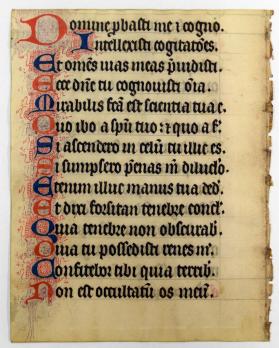 Domine ꝓbasti me ⁊ cogno.
Intellexisti cogitatōes.
Et omēs uias meas p̄uidisti.
Ecce dn̄e tu cognouisti oīa.
Mirabilis fc̄a est scientia tua e.
Quo ibo a spū tuo : ⁊ quo a f.
Si ascendero in celū tu illic es.
Si sumpsero pēnas m̄ diluclo.
Etenim illuc manus tua ded.
Et dixi forsitan tenebre concl.
Quia tenebre non obscurab.
Quia tu possedisti renes m̄.
Confitebor tibi quia terrib.
Non est occultatū os meū.